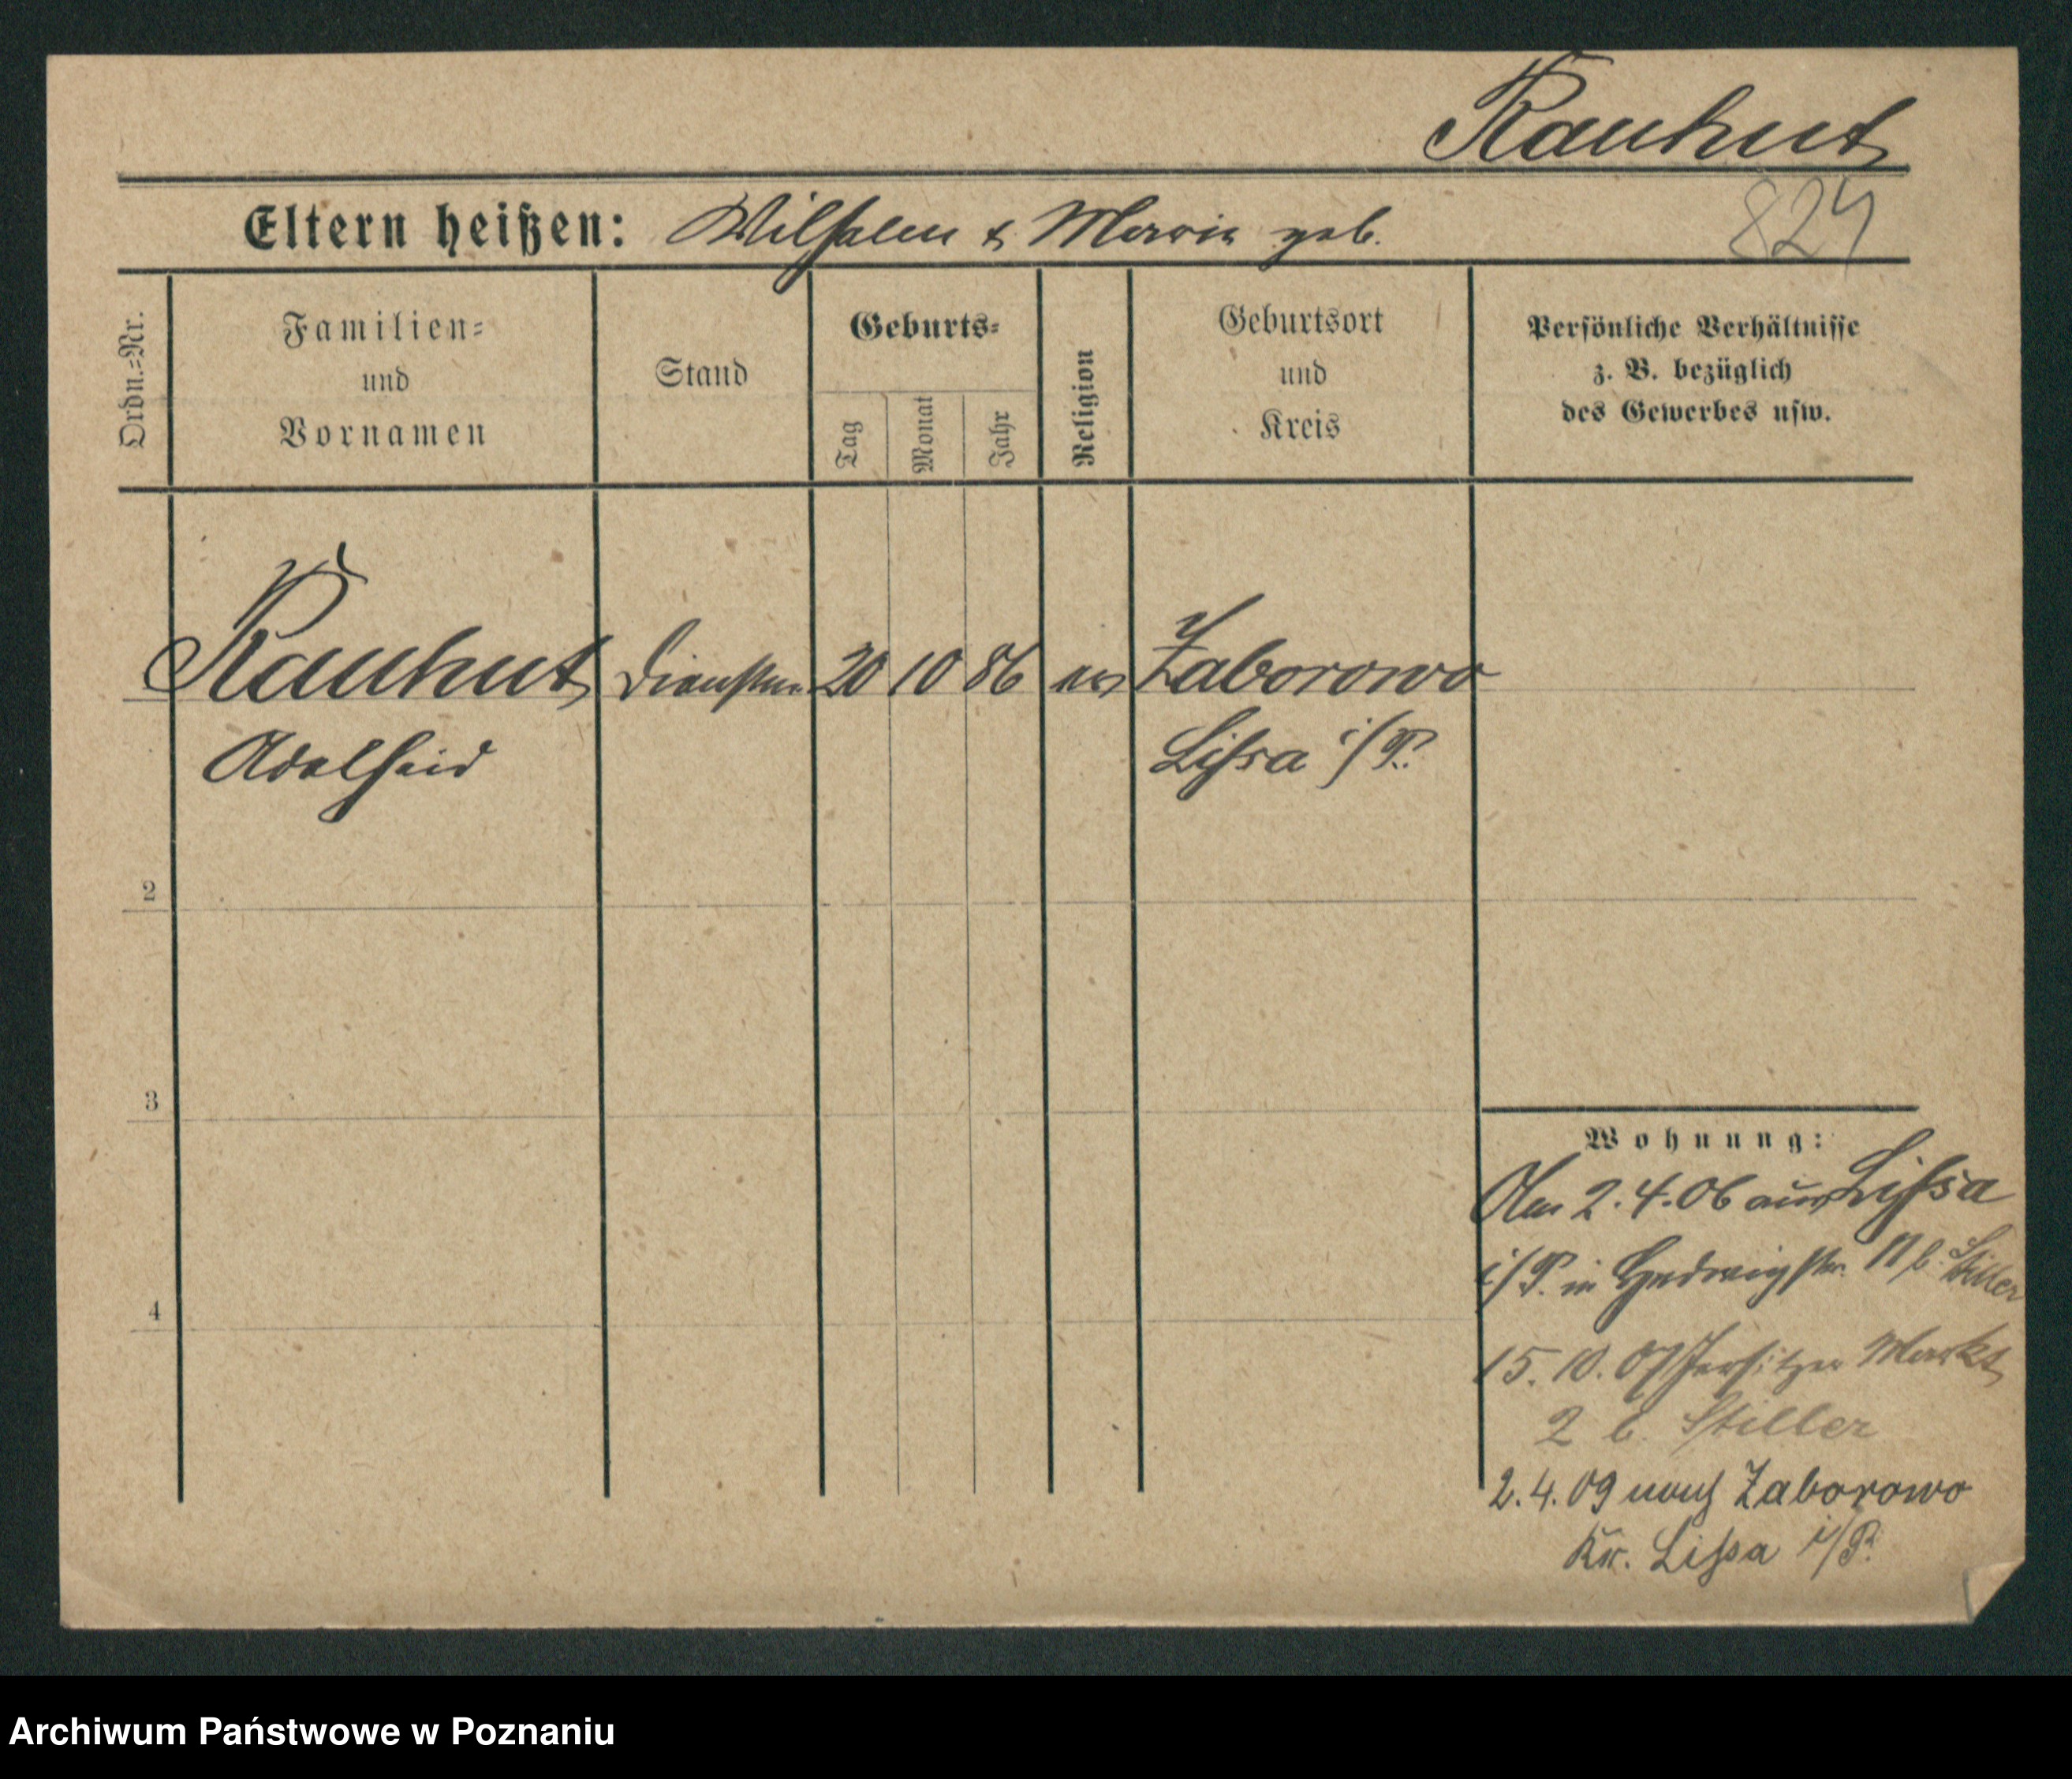 Rauhut
824
Eltern heißen: Wilhelm & Maria geb.
Ordn.=Nr.
Familien=
und
Vornamen
Stand
Geburts=
Tag
Monat
Jahr
Religion
Geburtsort
und
Kreis
Persönliche Verhältnisse
z. B. bezüglich
des Gewerbes usw.
Rauhut 20 10 86 ev Zaborowo
Adelheid Lissa i/P.
2
3
4
Wohnung:
Am 2.4.06 aus Lissa
i/P. in Hedwigstr. 11 b. Stiller
15.10.07 Jersitzer Markt
2 b. Stiller
2.4.09 nach Zaborowo
Kr. Lissa i/P.
Archiwum Państwowe w Poznaniu